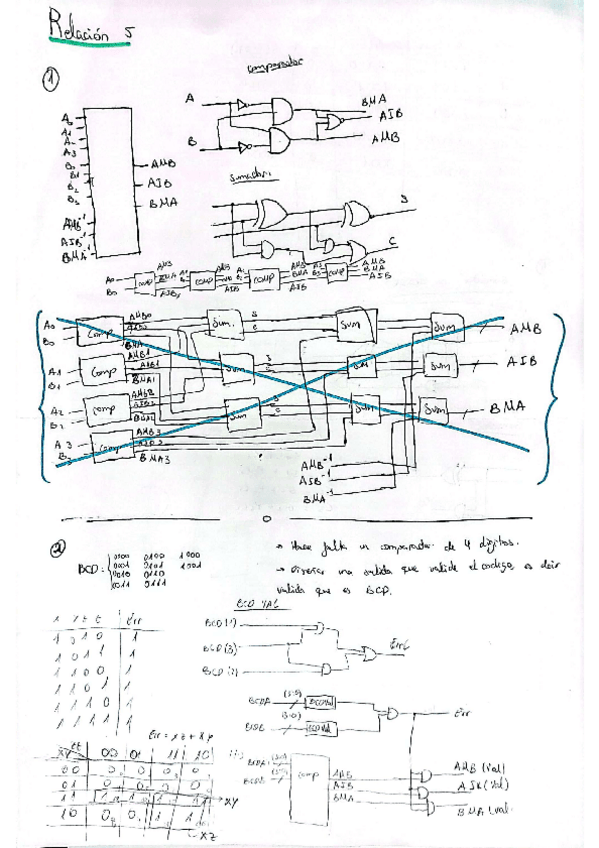 Relación 5
①
comparador
A
B
BMA
AIB
AMB
A0
A1
A2
A3
B0
B1
B2
B3
AMB
AIB
BMA
AMB⁻¹
AIB⁻¹
BMA⁻¹
Sumador:
S
C
A0
B0
comp
comp
comp
comp
AMB
BMA
AIB
A0
B0
Comp
AMB0
Sum.
Sum
Sum
AMB
A1
B1
Comp
AMB1
AIB1
BMA1
Sum
Sum
AIB
A2
B2
comp
Sum
Sum
Sum
BMA
A3
B3
Comp
AMB3
BMA3
AMB⁻¹
AIB⁻¹
BMA⁻¹
②
BCD:
0000 0100 1000
0001 0101 1001
0010 0110
0011 0111
→ Hace falta un comparador de 4 dígitos.
→ Diseñar una salida que valide el código, es decir
valida que es BCD.
BCD VAL
BCD(1)
BCD(3)
BCD(2)
Err
x y z t Err
1 0 1 0 1
1 0 1 1 1
1 1 0 0 1
1 1 0 1 1
1 1 1 0 1
1 1 1 1 1
Err = xz + xy
BCDA (3:0) BCDVal
BCDB (3:0) BCDVal
Err
xy zt 00 01 11 10
00 0 0 0 0
01 0 0 0 0
11 1 1 1 1
10 0 0 1 1
XY
XZ
BCDA (3:0)
BCDB (3:0)
comp
AMB
AIB
BMA
AMB (Val)
AIB (Val)
BMA (val)